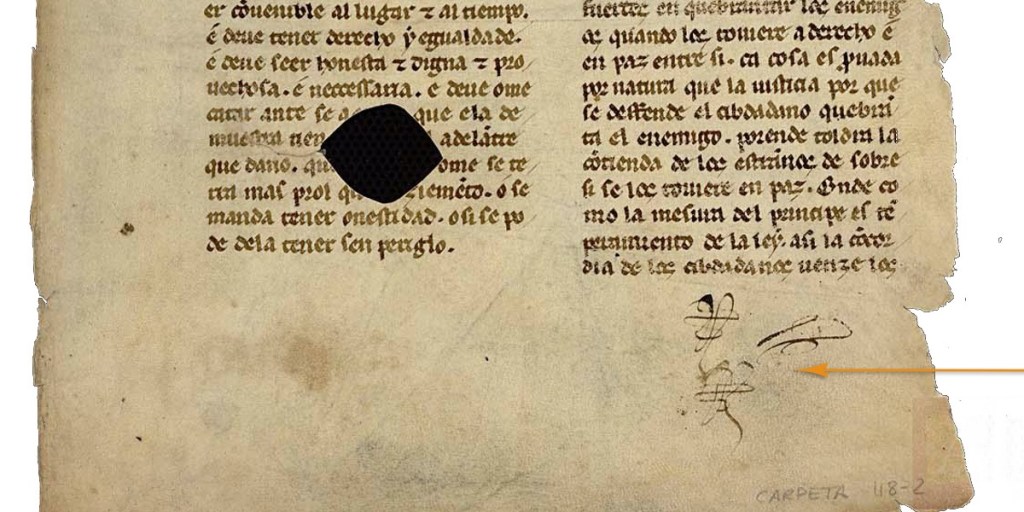 er cõuenible al lugar ⁊ al tiempo.
é deue tener derecho ẏ egualdade.
é deue seer honesta ⁊ digna ⁊ pro
uechosa. é neccessaria. e deue ome
catar ante se a que ela de
muestra adelãtre
que dano. ome se te
rra mas prol q o se
manda tener onestidad. o si se po
de dela tener sen periglo.
fuertes en quebrantar los enemig
os quando los touiere a derecho é
en paz entre si. ca cosa es puada
por natura que la iusticia por que
se deffende el cibdadano quebrã
ta el enemigo. porende toldra la
cõtienda de los estranos de sobre
si se los touiere en paz. Onde co
mo la mesura del principe es tẽ
peramiento de la leẏ. asi la cõcor
dia de los cibdadanos uenze los
CARPETA 48-2